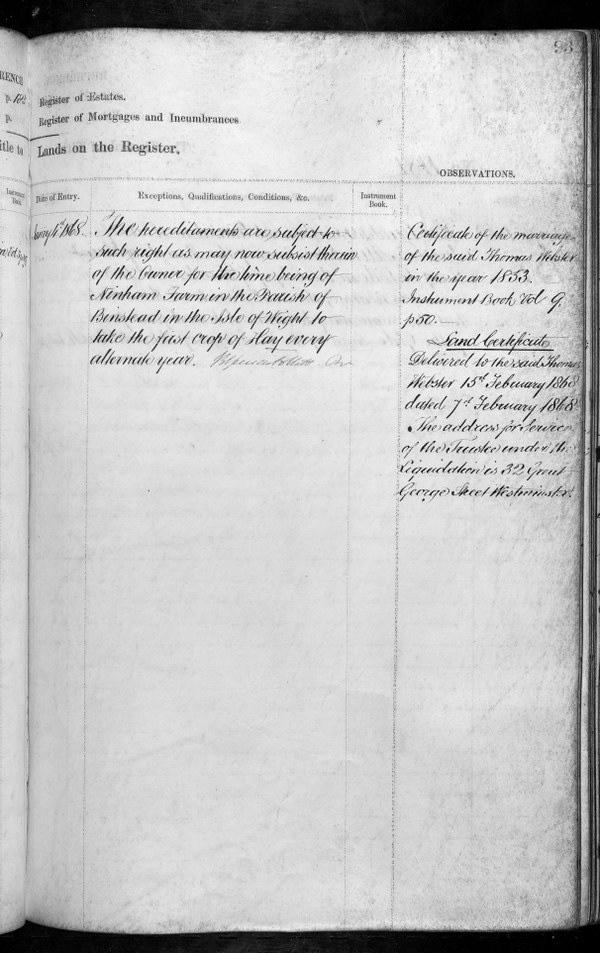 93
RENCH
p. 182
p.
itle to
Register of Estates.
Register of Mortgages and Incumbrances
Lands on the Register.
OBSERVATIONS.
Instrument
Book.
Date of Entry.
Exceptions, Qualifications, Conditions, &c.
Instrument
Book.
1868
The hereditaments are subject to
such right as may now subsist therein
of the Owner for the time being of
Ninham Farm in the Parish of
Binstead in the Isle of Wight to
take the first crop of Hay every
alternate year.
Certificate of the marriage
of the said Thomas Webster
in the year 1853.
Instrument Book Vol 9.
p50.
Land Certificate
Delivered to the said Thomas
Webster 15th February 1868
dated 7th February 1868
The address for Service
of the Trustee under the
Liquidation is 32 Great
George Street Westminster.